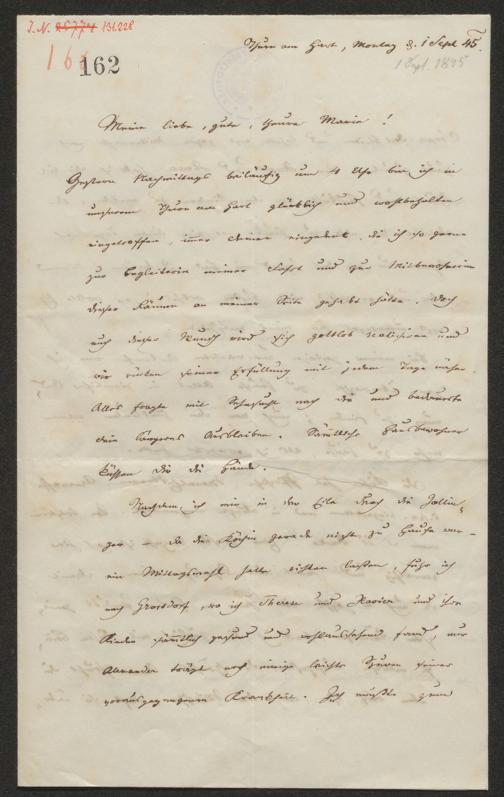 J. N. 25774 131.228
166
162
Thurn am Hart, Montag d. 1 Sept 45.
1 Sept. 1845
Meine liebe, gute, theure Marie!
Gestern Nachmittags beiläufig um 4 Uhr bin ich in
unserem Thurn am Hart glücklich und wohlbehalten
eingetroffen, immer Deiner eingedenk, die ich so gerne
zur Begleiterin meiner Fahrt und zur Mitbewohnerin
dieser Räume an meiner Seite gehabt hätte. Doch
auch dieser Wunsch wird sich gottlob realisiren und
wir rücken seiner Erfüllung mit jedem Tage näher.
Alles fragte mit Sehnsucht nach Dir und bedauerte
Dein längeres Ausbleiben. Sämtliche Hausbewohner
küssen Dir die Hände.
Nachdem ich mir in der Eile durch die
– da die Köchin gerade nicht zu Hause war –
ein Mittagsmahl hatte richten lassen, fuhr ich
nach Grosdorf, wo ich Therese und Xavier und ihre
Kinder sämtlich gesund und wohlaussehend fand, nur
Alexander trägt noch einige leichte Spuren seiner
vorausgegangenen Krankheit. Ich mußte zum